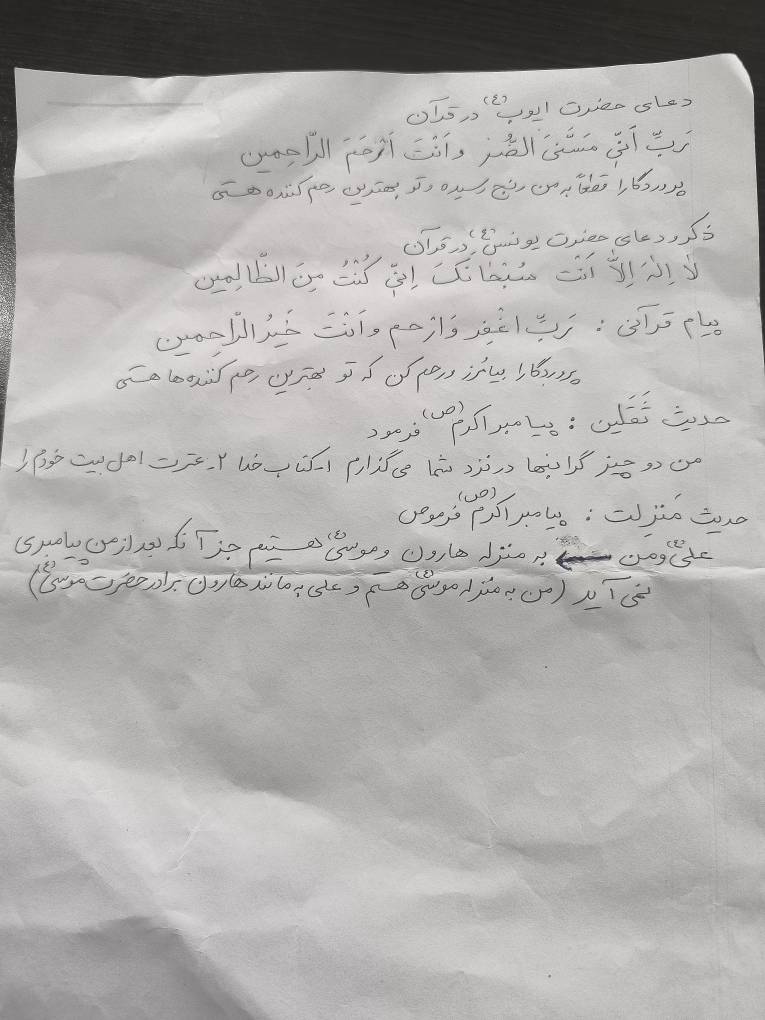 دعای حضرت ایوب (ع) در قرآن
رَبِّ اَنّی مَسَّنیَ الضُّر وَ اَنْتَ اَرْحَمَ الرّاحِمین
پروردگارا قطعاً به من رنج رسیده و تو بهترین رحم کننده هستی
ذکر و دعای حضرت یونس (ع) در قرآن
لا اِلهَ اِلاّ اَنْت سُبْحانَکَ اِنّی کُنْتُ مِنَ الظّالِمین
پیام قرآنی : رَبِّ اغْفِر وَارْحم و اَنْتَ خَیرُ الرّاحِمین
پروردگارا بیامُرز و رحم کن که تو بهترین رحم کننده ها هستی
حدیث ثَقَلین : پیامبر اکرم (ص) فرمود
من دو چیز گرانبها در نزد شما می گذارم ۱- کتاب خدا ۲- عترت اهل بیت خودم را
حدیث مَنزِلت : پیامبر اکرم (ص) فرمود
علی (ع) و من ← به منزله هارون و موسی (ع) هستیم جز آنکه بعد از من پیامبری
نمی آید (من به منزله موسی (ع) هستم و علی به مانند هارون برادر حضرت موسی (ع))